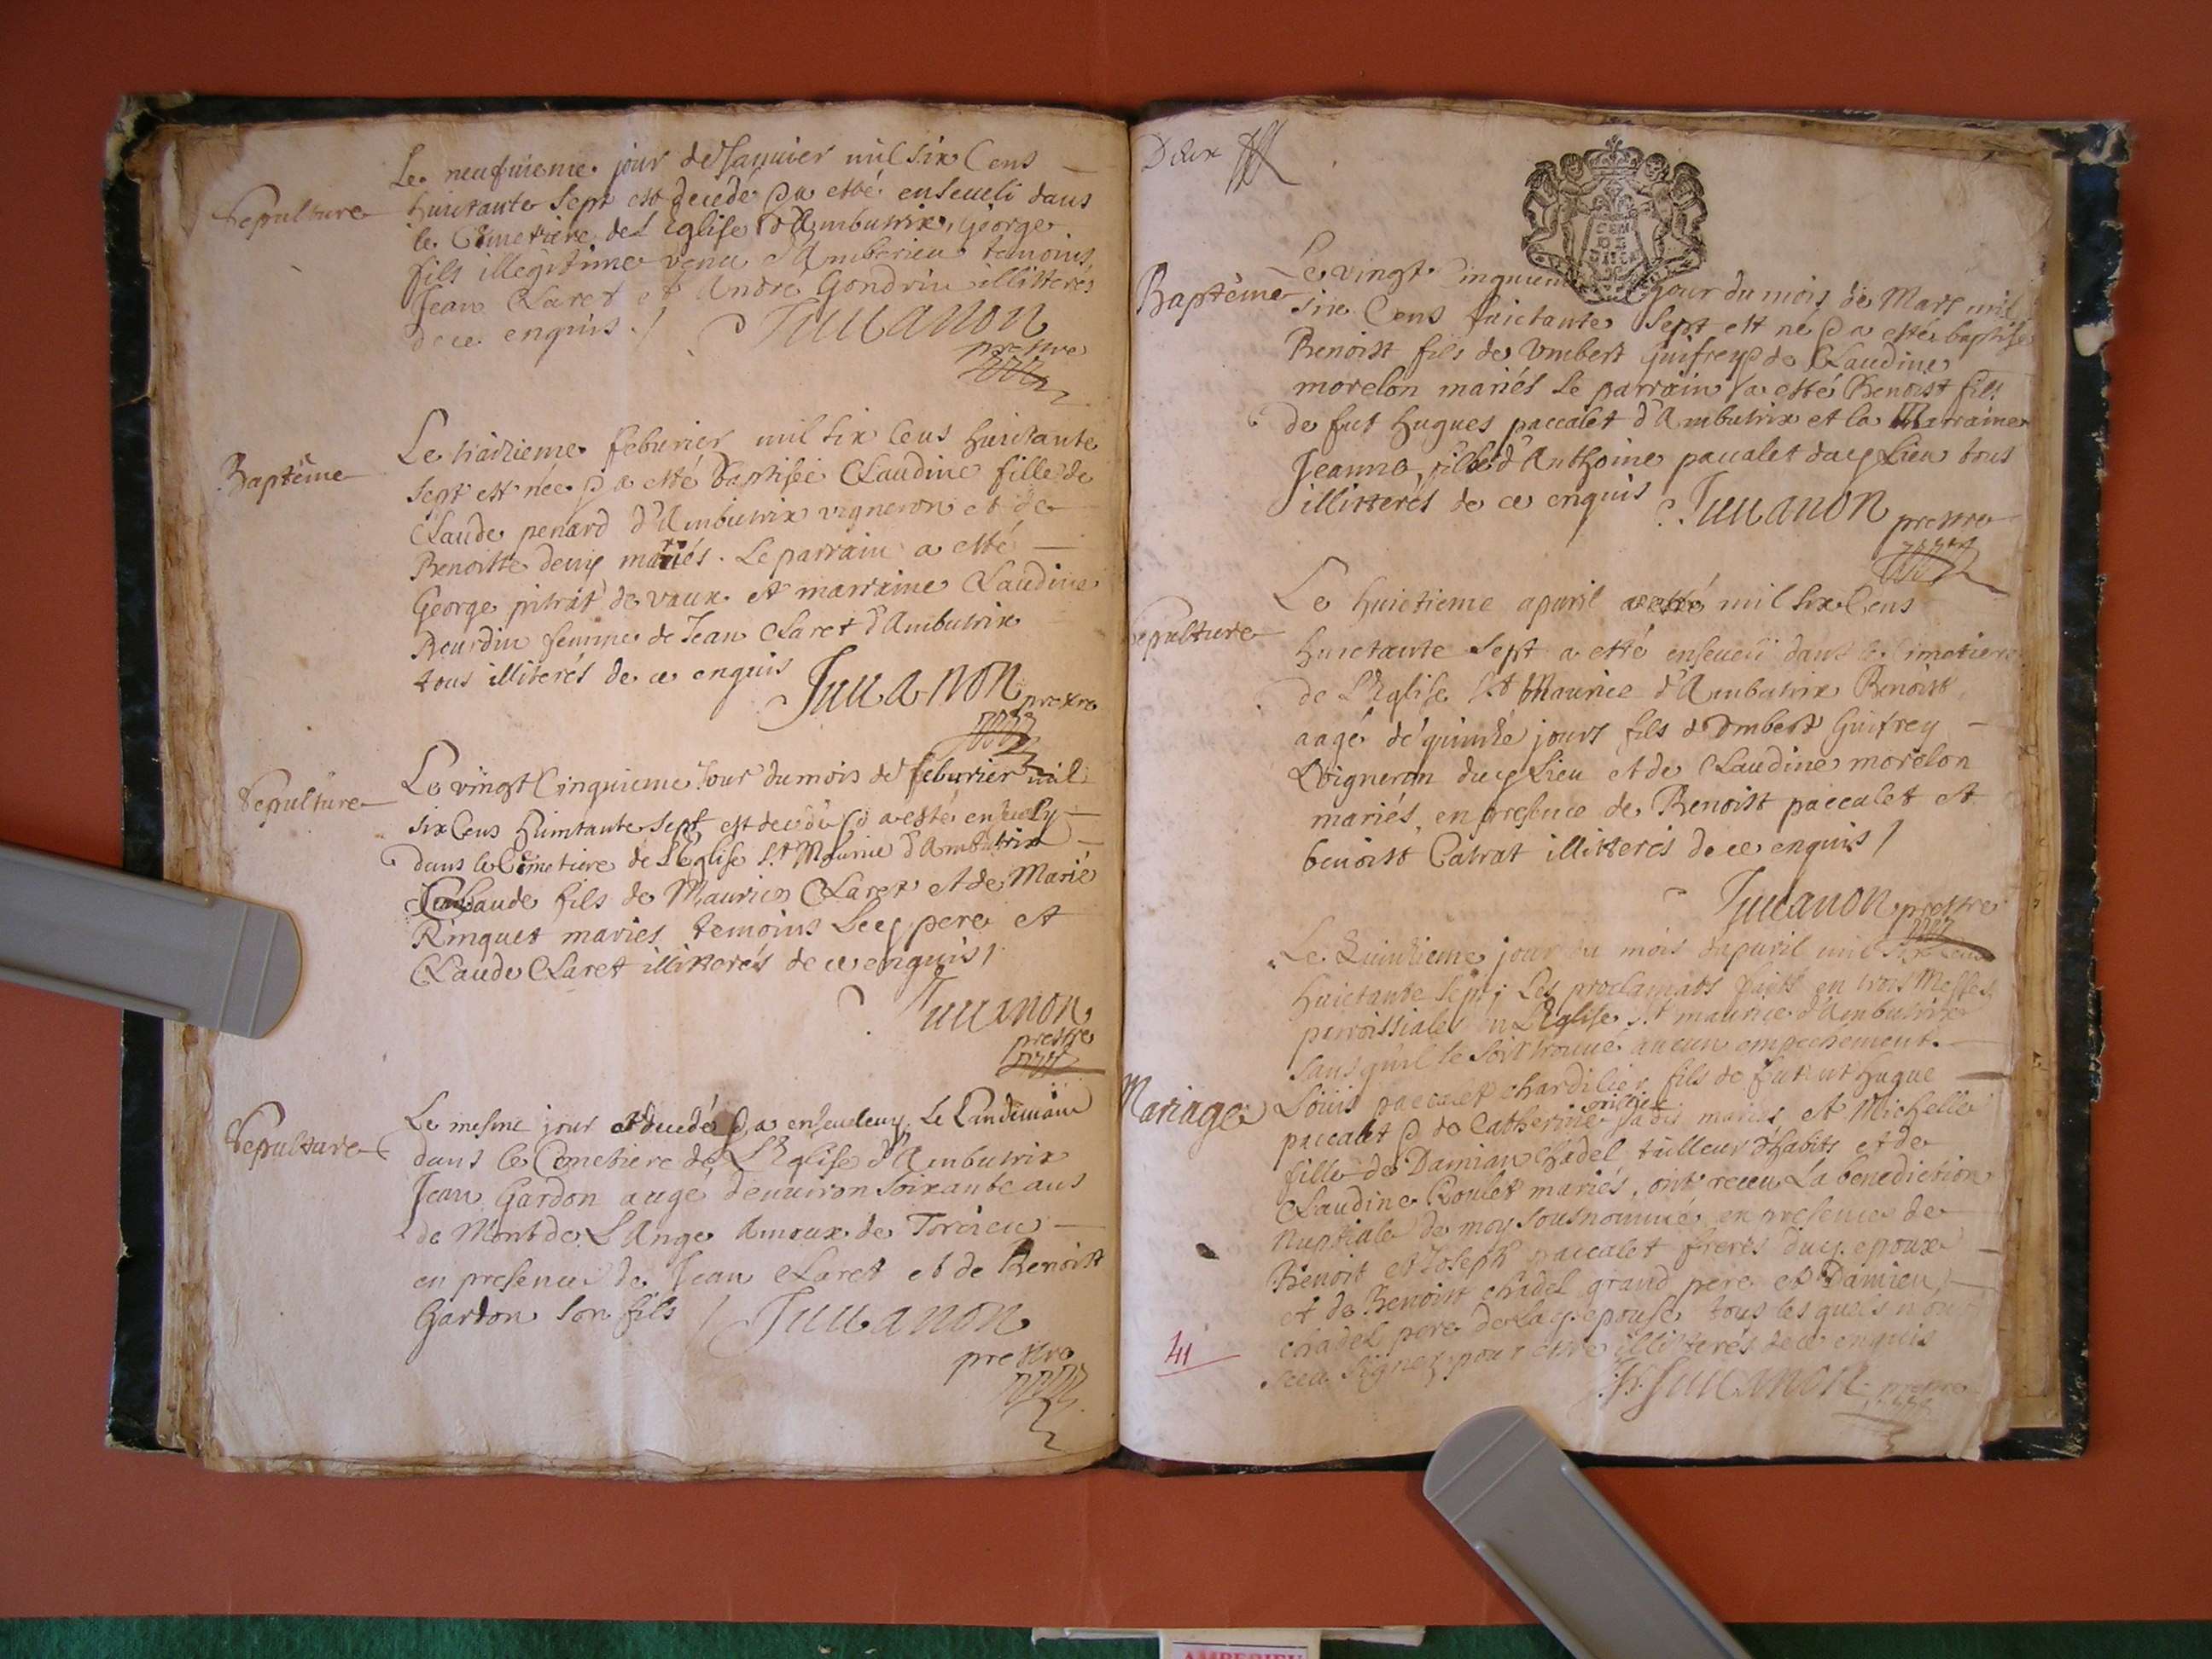 Sepulture
Le neufuieme jour de Januier mil six Cens
huictante sept est decedé & a esté enseueli dans
le Cimetiere de L'Eglise d'Ambutrix, George
fils illegitime venu d'Amberieu temoins
Jean Claret et Andre Gondrin illitterés
de ce enquis /
Juuanon
prestre
Baptême
Le traizieme feburier mil six Cens huictante
sept est née & a esté baptisée Claudine fille de
Claude penard d'Ambutrix vigneron et de
Benoitte deny mariés. Le parrain a esté
George pitrat de vaux et marraine Claudine
Bourdin femme de Jean Claret d'Ambutrix
tous illiterés de ce enquis
Juuanon prestre
Sepulture
Le vingt Cinquieme Jour du mois de feburier mil
six Cens huictante sept est decedé & a esté enseuely
dans le Cimetiere de L'Eglise St Maurice d'Ambutrix
Claude fils de Maurice Claret et de Marie
Rinquet mariés temoins Lecy pere et
Claude Claret illitterés de ce enquis /
Juuanon
prestre
Sepulture
Le mesme jour est decedé & a enseueleuy Le Landemain
dans le Cemetiere de L'Eglise d'Ambutrix
Jean Gardon aagé d'enuiron soixante ans
de Mont de L'Ange Amoux de Torcieu
en presence de Jean Claret et de Benoist
Gardon son fils /
Juuanon
prestre
Deux
CEN
DE
Baptême
Le vingt Cinquieme jour du mois de Mars mil
six Cens huictante sept est né & a esté baptisé
Benoist fils de Vmbert Guifrey & de Claudine
morelon mariés Le parrain a esté Benoist fils
de fut Hugues paccalet d'Ambutrix et la Marraine
Jeanne fille d'Anthoine paccalet ducy Lieu tous
illitterés de ce enquis
Juuanon prestre
Sepulture
Le huictieme apuril a esté mil six Cens
huictante sept a esté enseueli dans le Cimetiere
de L'Eglise St Maurice d'Ambutrix Benoist
aagé de quinze jours fils d'Vmbert Guifrey
Vigneron ducy Lieu et de Claudine morelon
mariés, en presence de Benoist paccalet et
benoist Catrat illitterés de ce enquis /
Juuanon prestre
Mariage
Le Quinzieme jour du mois d'apuril mil six Cens
huictante sept; Les proclamats faicts en trois Messes
parroissiales en L'Eglise St maurice d'Ambutrix
sans qu'il se soit trouué aucun empechement
Louis paccalet chardilier fils de fut Hugue
paccalet & de Catherine jadis mariés, et Michelle
fille de Damian Chadel tailleur d'habits et de
Claudine Roulet mariés, ont receu La benediction
nuptiale de moy sousnommé en presence de
Benoit et Joseph paccalet freres ducy epoux
et de Benoist chadel grand pere et Damien
chadel pere de Lacy epouse tous lesquels n'ont
sceu signer pour estre illitterés de ce enquis
Juuanon prestre
41
AMBERIEU